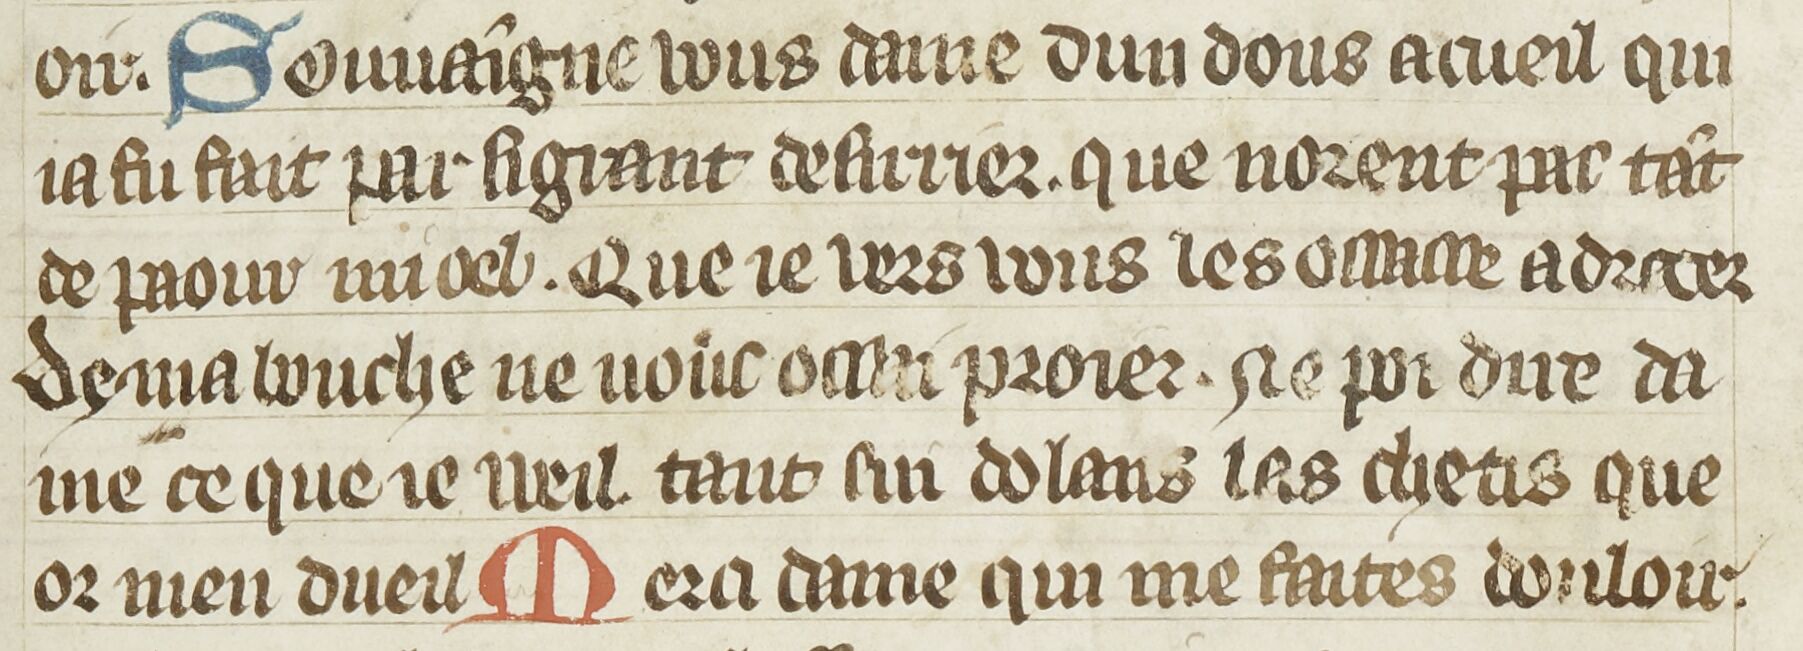 oir. Souuaīgne vous dame dun dous acueil qui
ia fu fait par si grant desirrier. que norent pas tāt
de paour mi oel. Que ie vers vous les osasse adrecier
De ma bouche ne vous osai proier. Ne poi dire da
me ce que ie ueil tant sui dolans las chetis que
or men dueil Merci dame qui me faites douloir.